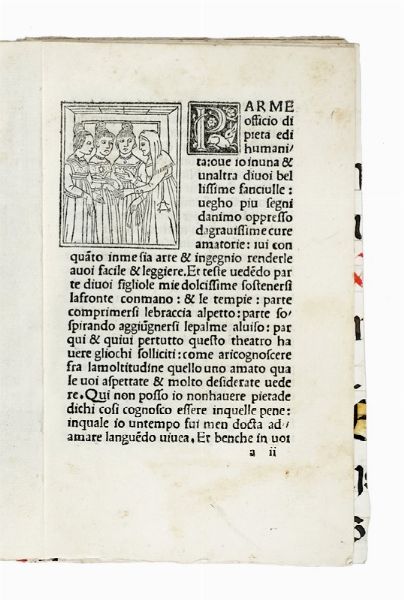 PARME
officio di
pieta edi
humani/
ta:oue io inuna &
unaltra diuoi bel
lissime fanciulle:
ueggo piu segni
danimo oppresso
dagrauissime cure
amatorie: iui con
quāto inme sia arte & ingegnio renderle
auoi facile & leggiere.Et teste uedēdo par
te diuoi figliole mie dolcissime sostenersi
lafronte conmano: & le tempie: parte
comprimersi lebraccia alpetto: parte so/
spirando aggiūgnersi lepalme aluiso: par
qui & quiui pertutto questo theatro ha
uere gliochi solliciti: come aricognoscere
fra lamoltitudine quello uno amato qua
le uoi aspettate & molto desiderate uede
re. Qui non posso io nonhauere pietade
dichi cosi cognosco essere inquelle pene:
inquale io untempo fui men docta ad/
amare languēdo uiuea. Et benche in uoi
a ii